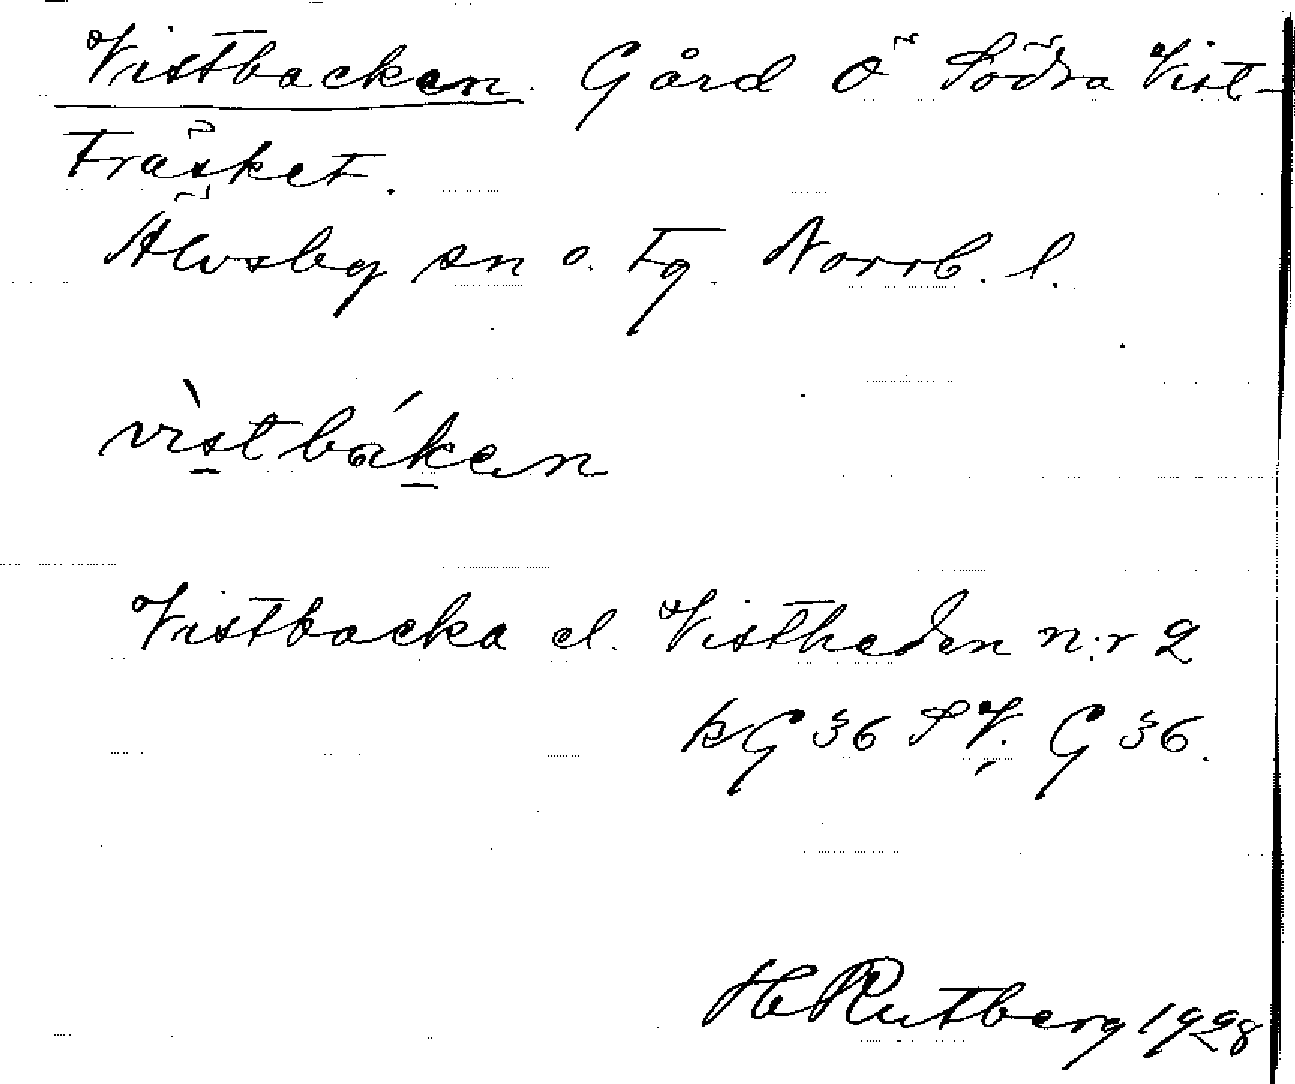 Vistbacken. Gård Ö Södra Vist-
träsket.
Älvsby sn o. tg. Norrb. l.
vìstbák̲an
Vistbacka el. Vistheden n:r 2
kG 36 SV. G 36.
H Rutberg 1928